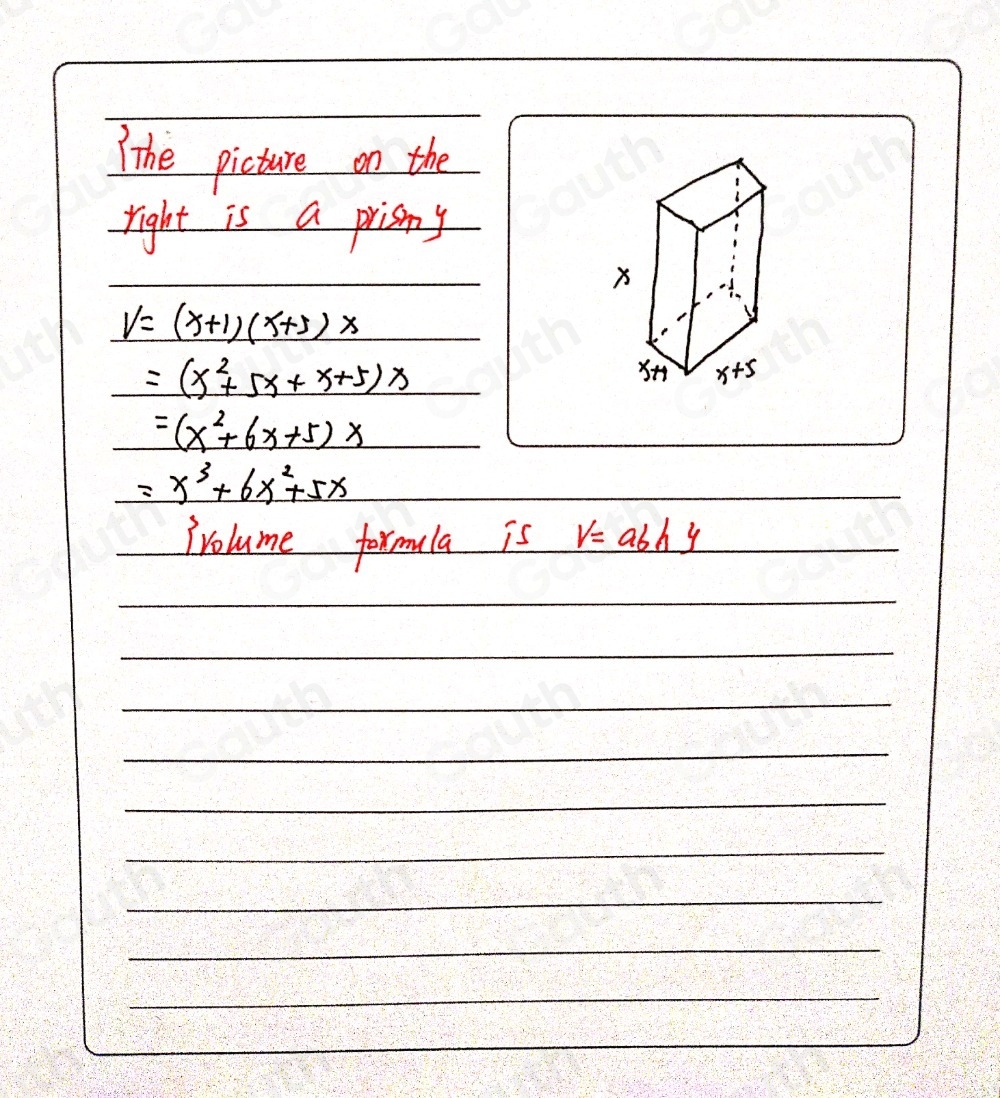 {The picture on the
right is a prism}
V= (x+1)(x+5)x
= (x²+5x+x+5)x
=(x²+6x+5)x
= x³+6x²+5x
{volume formula is V=abh}
x
x+1
x+5
Gauth